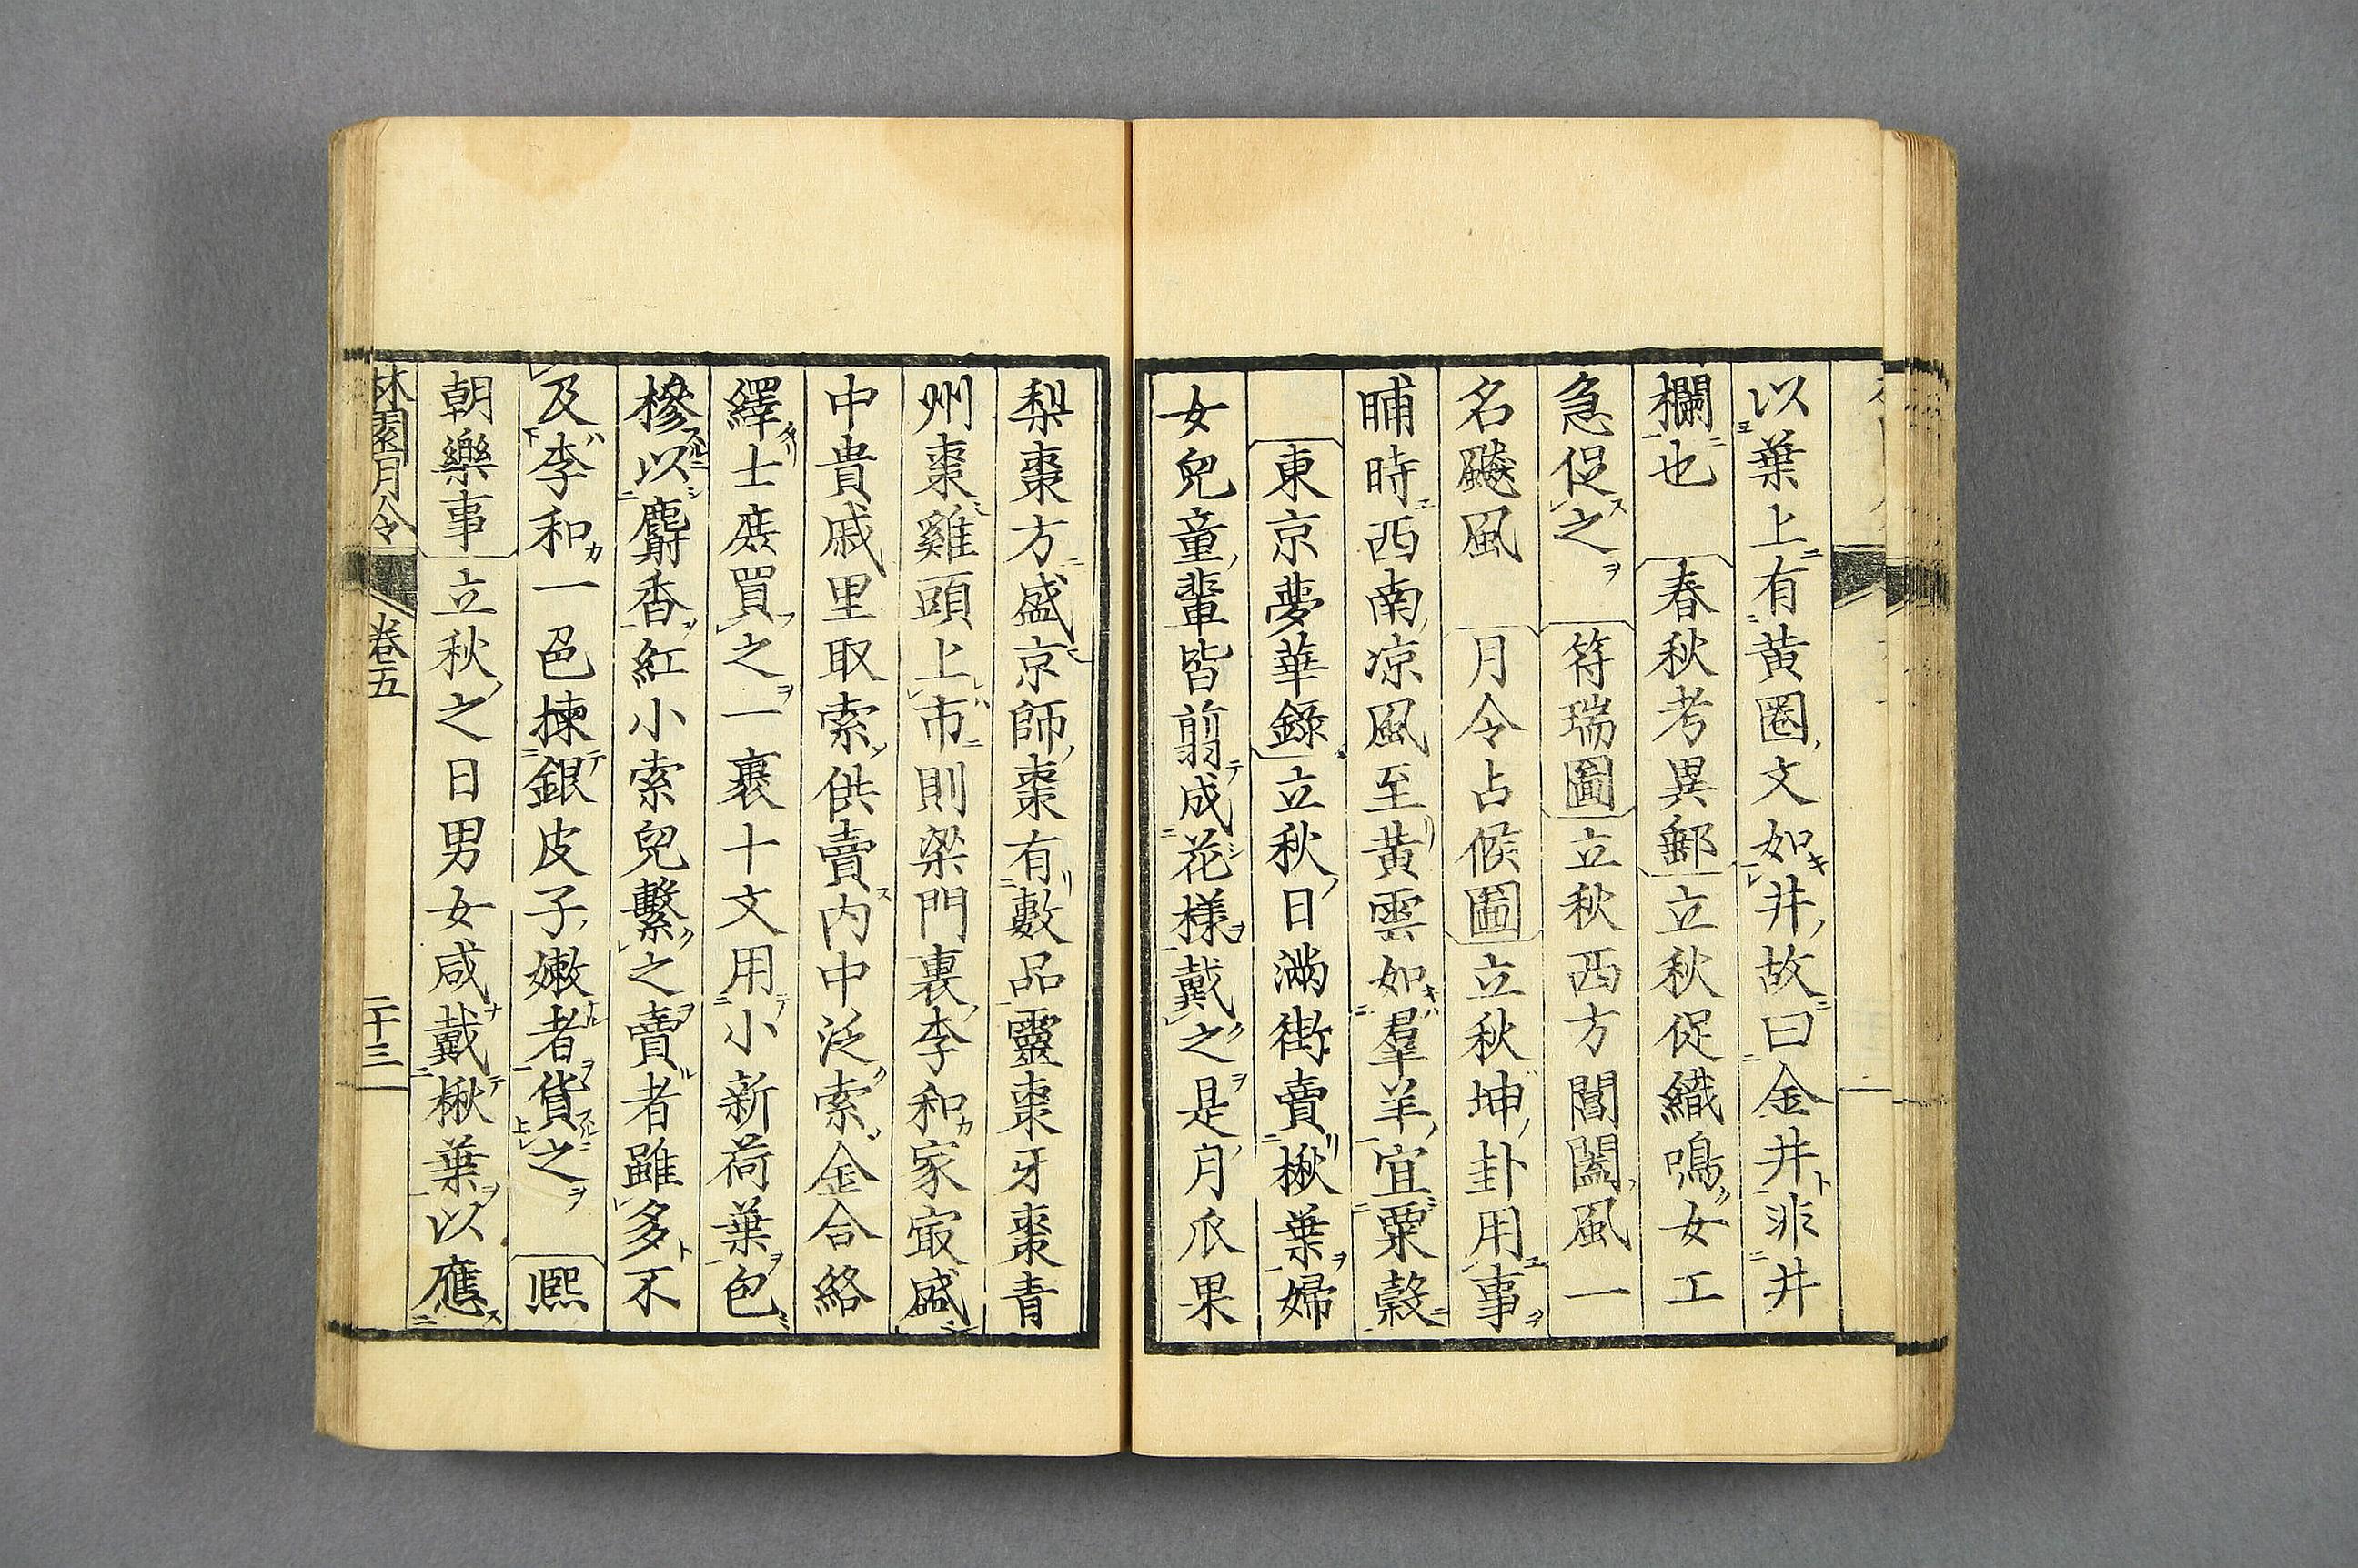 以葉上有黄圈文如井故曰金井井非井
欄也 春秋考異郵立秋促織鳴女工
急促之 符瑞圖立秋西方閶闔風一
名飈風 月令占候圖立秋坤卦用事
晡時西南凉風至黄雲如羣羊宜粟穀
東京夢華錄立秋日滿街賣楸葉婦
女兒童輩皆剪成花樣戴之是月瓜果
梨棗方盛京師棗有數品靈棗牙棗青
州棗雞頭上市則梁門裏李和家㝡盛
中貴戚里取索供賣内中泛索金合絡
繹士庶買之一裹十文用小新荷葉包
糝以麝香紅小索兒繫之賣者雖多不
及李和一色揀銀皮子嫩者貨之 熙
朝樂事立秋之日男女咸戴楸葉以應
林園月令 卷五 二十三